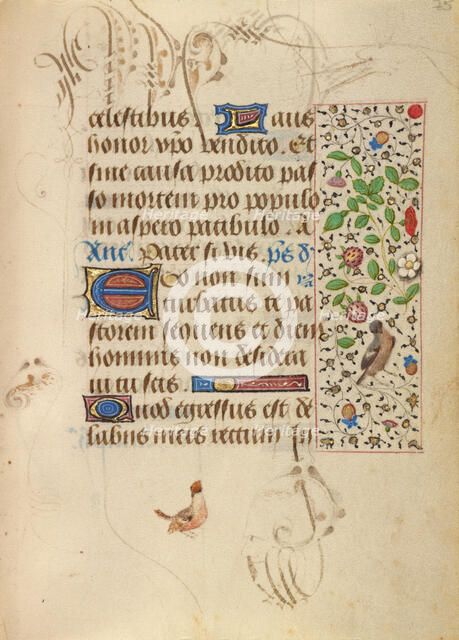 25
celestibus Laus
honor xpo vendito. Et
sine causa prodito pas
so mortem pro populo
in aspero patibulo. A
Ane. Pater si vis. ps d
EGo non sum
turbatus te pa
storem sequens et diem
hominis non desidera
ui tu scis.
Quod egressus est de
labijs meis rectum in
Heritage Heritage Heritage
Heritage Heritage